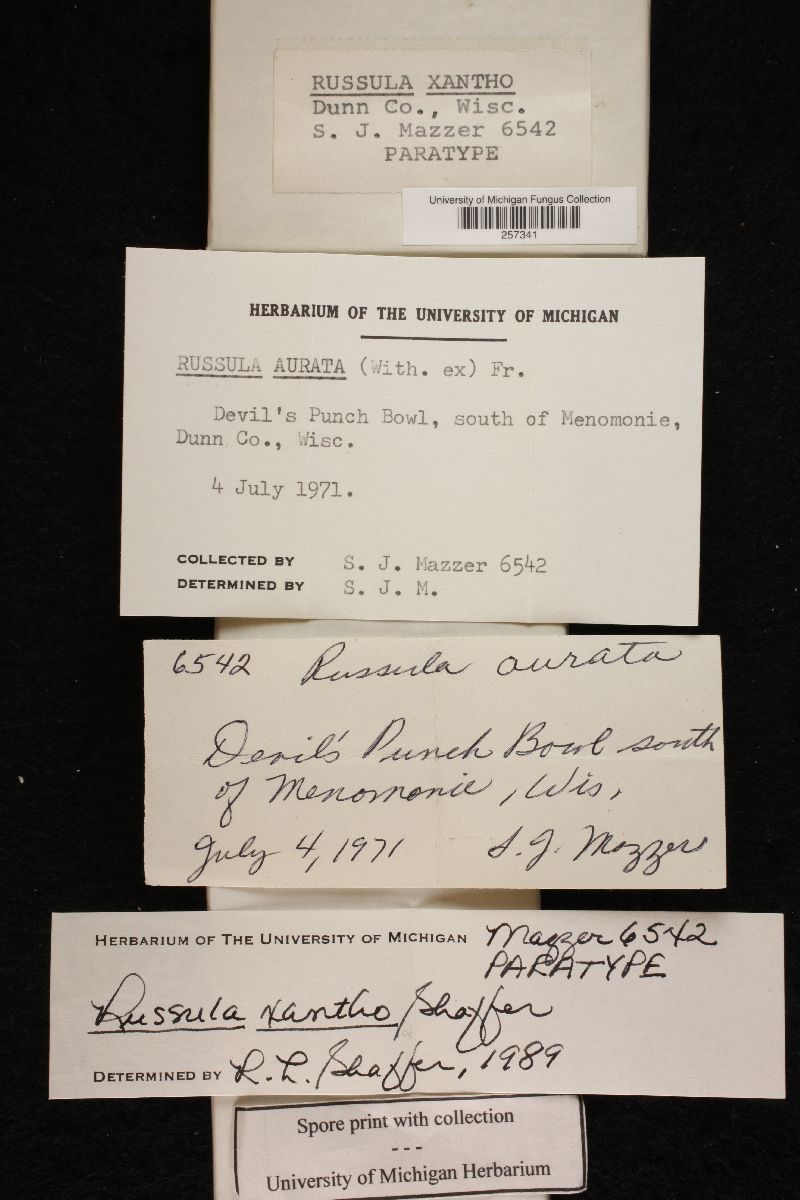 RUSSULA XANTHO
Dunn Co., Wisc.
S. J. Mazzer 6542
PARATYPE
University of Michigan Fungus Collection
257341
HERBARIUM OF THE UNIVERSITY OF MICHIGAN
RUSSULA AURATA (With. ex) Fr.
Devil's Punch Bowl, south of Menomonie,
Dunn Co., Wisc.
4 July 1971.
COLLECTED BY S. J. Mazzer 6542
DETERMINED BY S. J. M.
6542 Russula aurata
Devil's Punch Bowl south
of Menomonie, Wis,
July 4, 1971 S. J. Mazzer
HERBARIUM OF THE UNIVERSITY OF MICHIGAN Mazzer 6542
PARATYPE
Russula xantho Shaffer
DETERMINED BY R. L. Shaffer, 1989
Spore print with collection
---
University of Michigan Herbarium